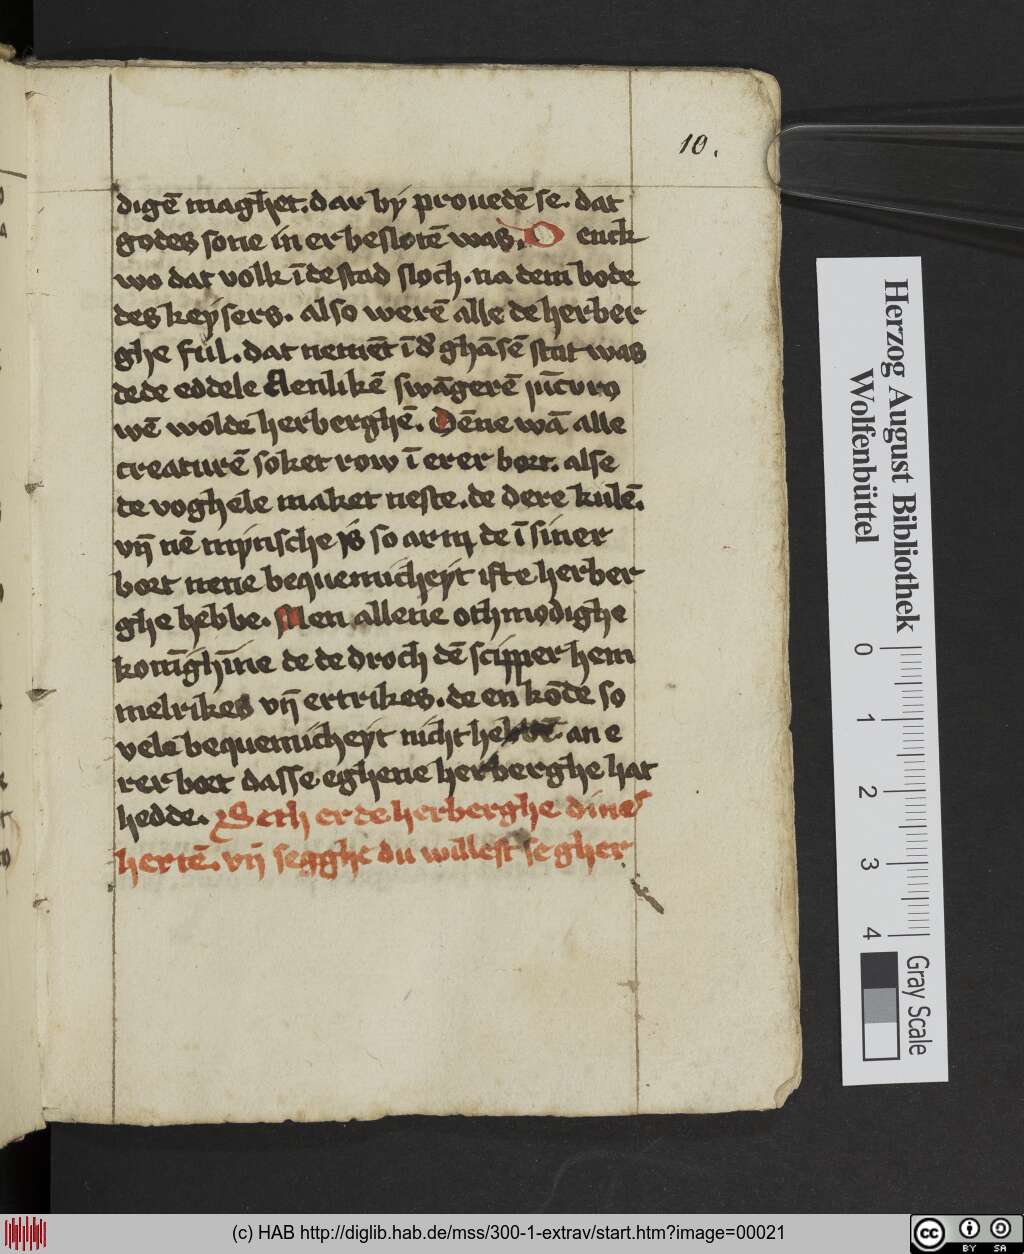 10.
digē maghet. dar by prouedē se. dat
godes sone in er beslotē was. D enck
wo dat volk ī de stad sloch. na dem bode
des keysers. also werē alle de herber
ghe ful. dat nemēt ī d' ghāsē stat was
de de eddele elenlikē swāgerē iūcvro
wē wolde herberghē. Dēne wā alle
creaturē soket row ī erer bort. alse
de voghele maket neste. de dere kulē.
vn̄ nē mynsche is so arm de ī siner
bort nene bequemicheyt ifte herber
ghe hebbe. Men allene othmodighe
konīghīne de de droch dē scipper hem
melrikes vn̄ ertrikes. de en kōde so
vele bequemicheyt nicht hebbē an e
rer bort dasse eghene herberghe hat
hedde. Seth er de herberghe dines
hertē. vn̄ segghe du willest se gher
Herzog August Bibliothek
Wolfenbüttel
0 1 2 3 4
Gray Scale
(c) HAB http://diglib.hab.de/mss/300-1-extrav/start.htm?image=00021
cc BY SA